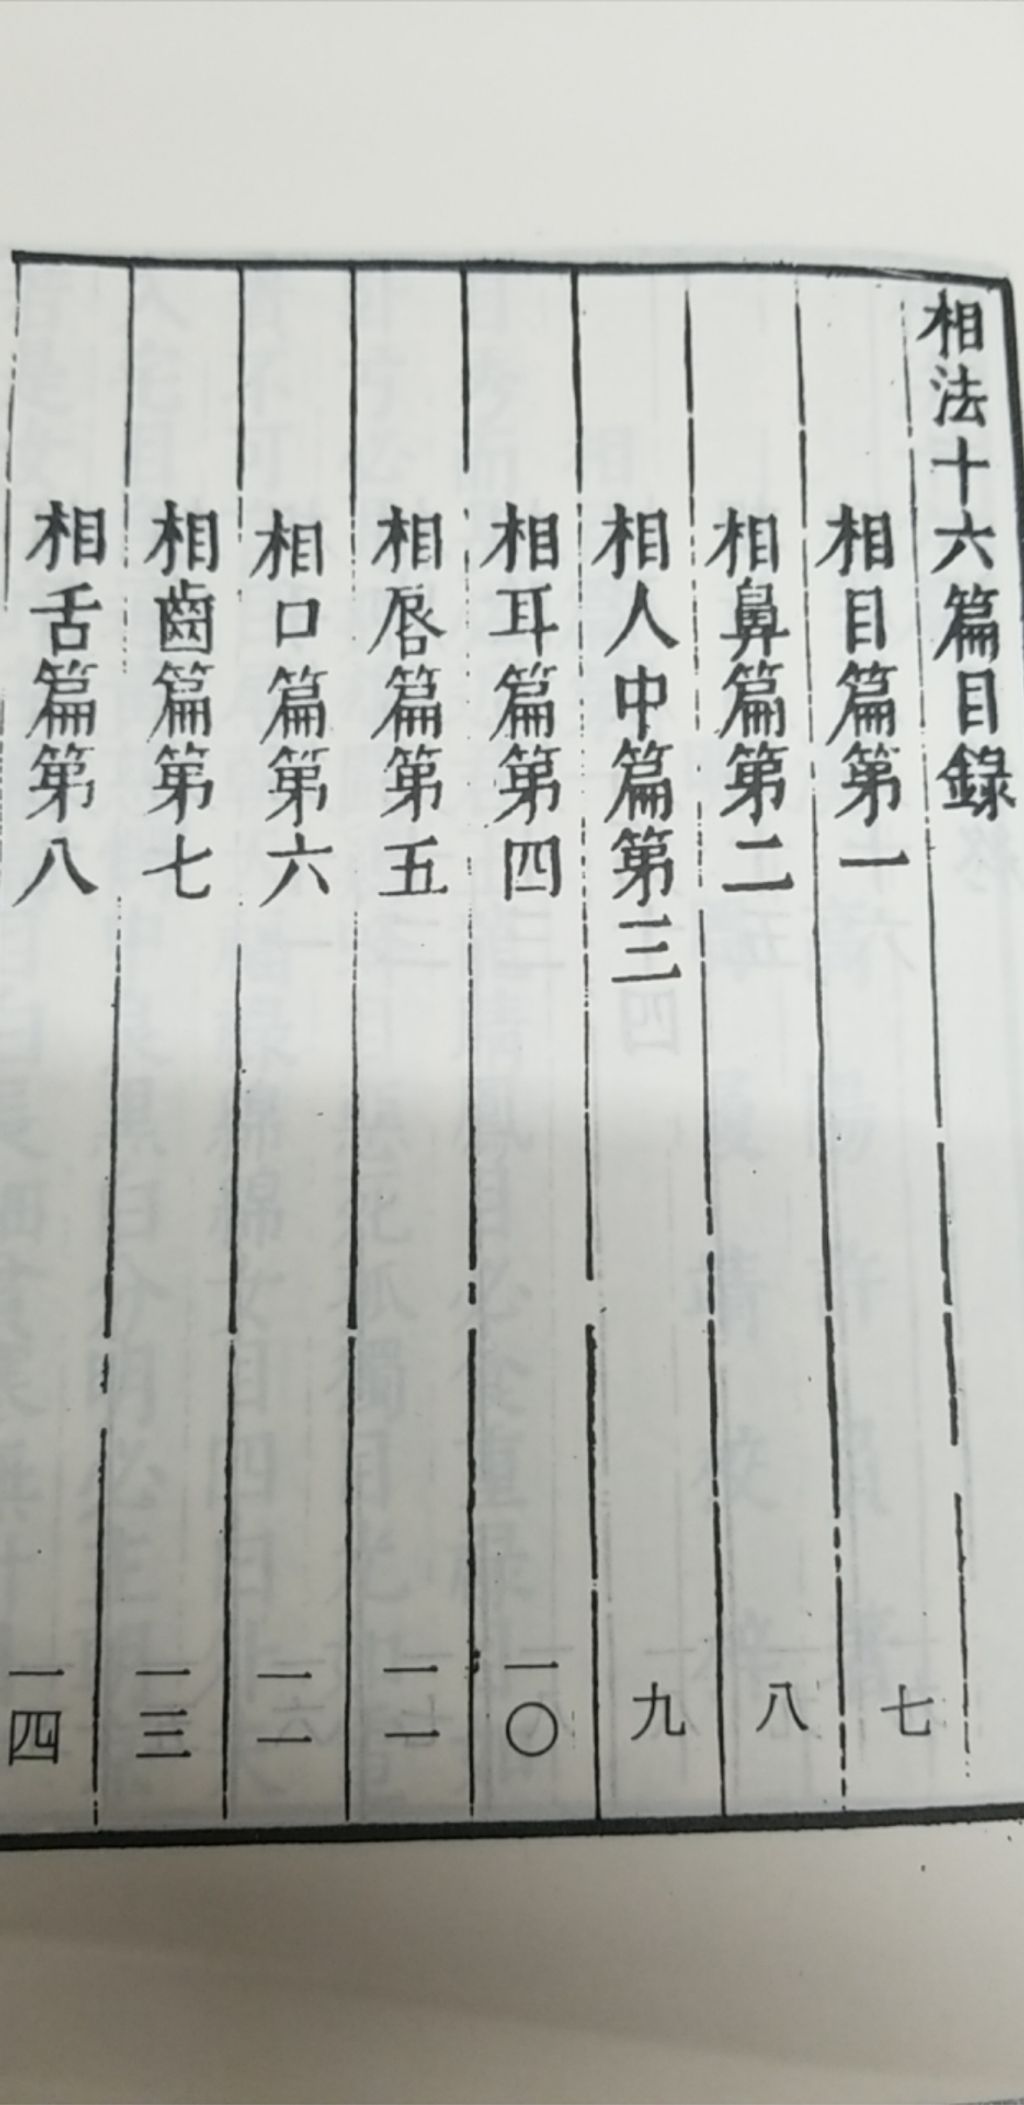 相法十六篇目錄
相目篇第一 七
相鼻篇第二 八
相人中篇第三 九
相耳篇第四 一〇
相唇篇第五 一一
相口篇第六 一一
相齒篇第七 一三
相舌篇第八 一四